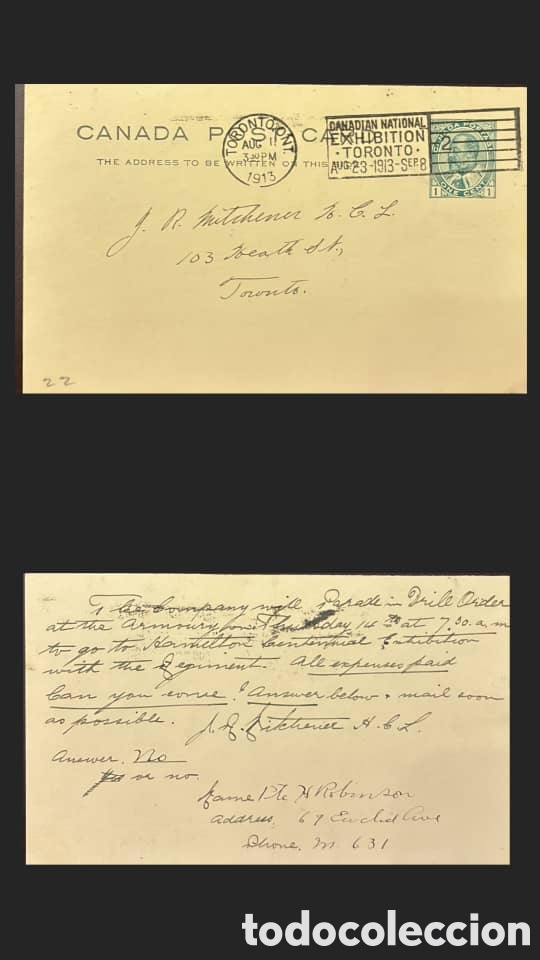 CANADA POST CARD
THE ADDRESS TO BE WRITTEN ON THIS
TORONTO, ONT.
AUG 11
3 30 PM
1913
CANADIAN NATIONAL
EXHIBITION
· TORONTO ·
AUG. 23-1913-SEP. 8
2
CANADA POSTAGE
1 ONE CENT 1
J. R. Mitchener H. C. L.
103 Heath St,
Toronto.
22
The Company will Parade in Drill Order
at the Armoury, on Thursday 14th at 7.30. a.m
to go to Hamilton Centennial Exhibition
with the Regiment. All expenses paid
Can you come? Answer below & mail soon
as possible. J. R. Mitchener H. C. L.
Answer. No
Yes or no.
Name Pte H Robinson
Address, 69 Euclid Ave
Phone, M 631
todocoleccion